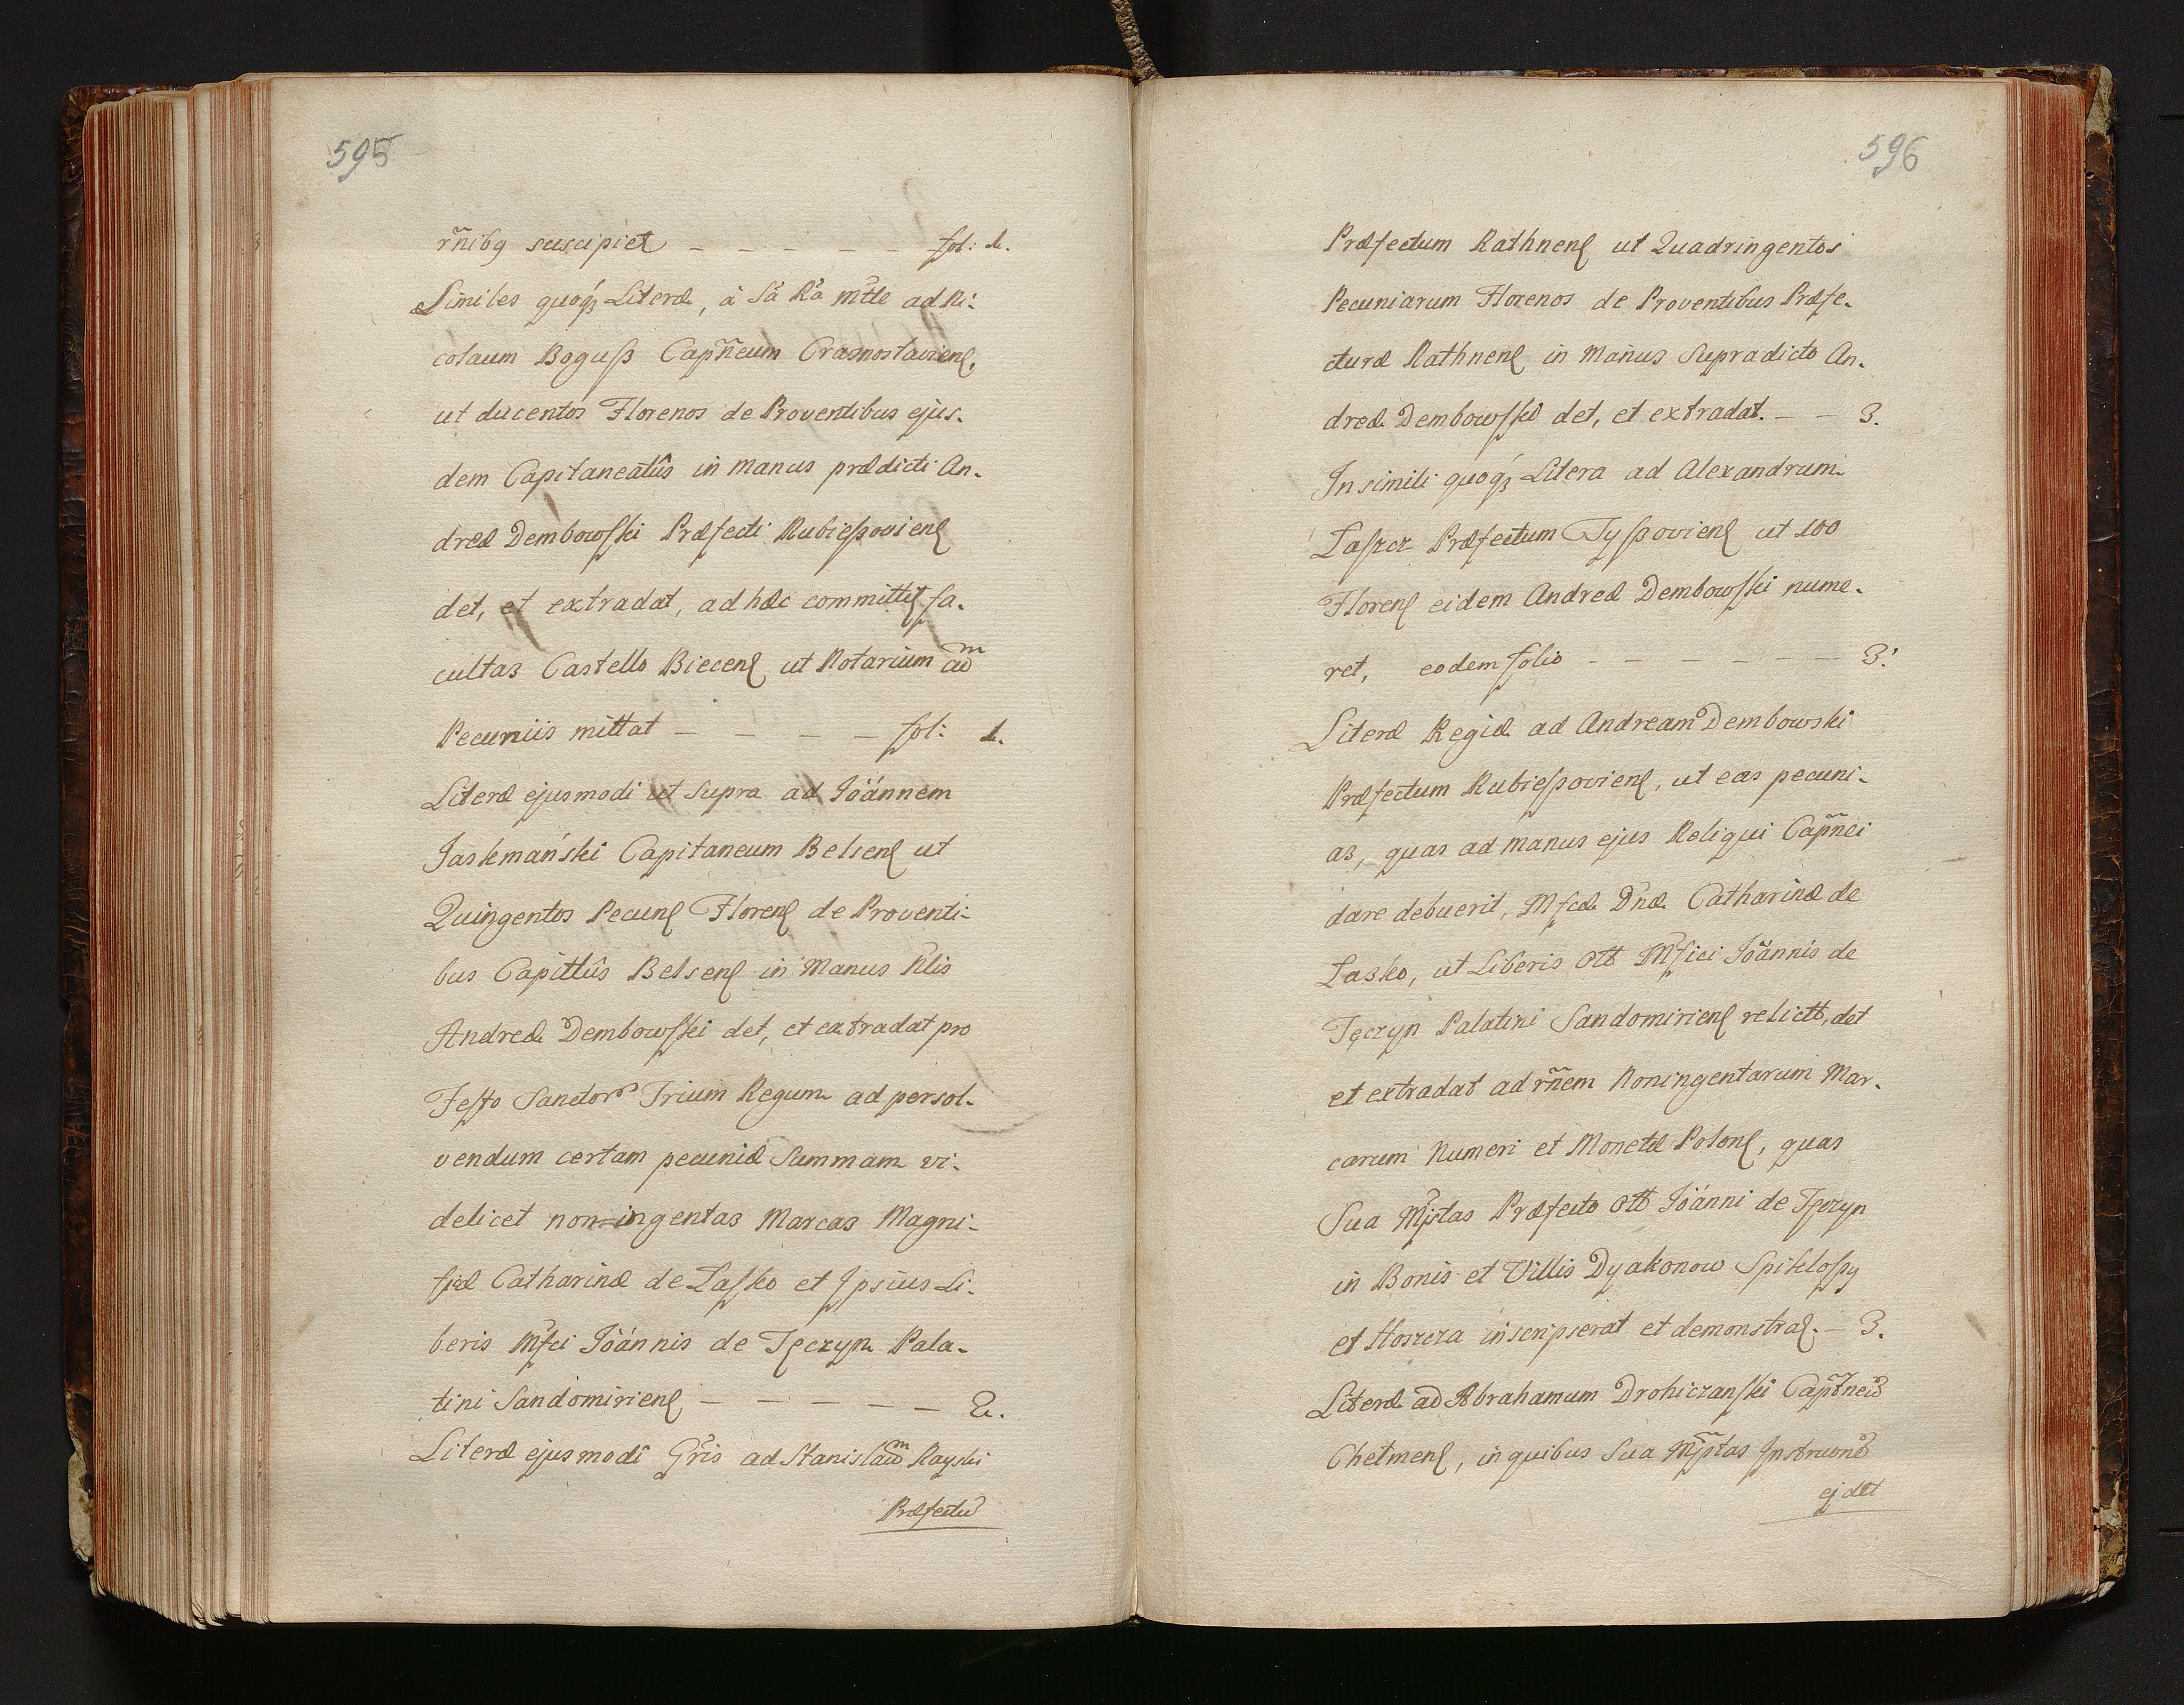 595
rñibq suscipiet – – – – – fol: 1.
Similes quoqȝ Literæ, à Sa Ra mtte ad Ni-
colaum Boguſz Capñeum Crasnostaviens,
ut ducentos Florenos de Proventibus ejus-
dem Capitaneatûs in manus prædicti An-
dreæ Dembowſki Præfecti Rubieſzoviens
det, et extradat, ad hæc committit fa-
cultas Castello Biecens ut Notarium cum
Pecuniis mittat – – – – fol: 1.
Literæ ejusmodi ut Supra ad Joánnem
Jaskmański Capitaneum Belsens ut
Quingentos Pecuns Florens de Proventi-
bus Capittûs Belsens in Manus Nlis
Andreæ Dembowſki det, et extradat pro
Feſto Sanctor Trium Regum ad persol-
vendum certam pecuniæ Summam vi-
delicet non-ingentas Marcas Magni-
ficæ Catharinæ de Laſko et Ipsius Li-
beris Mfci Joánnis de Tęczyn Pala-
tini Sandomiriens – – – – – 2.
Literæ ejusmodi Gris ad Stanislaum Rayski
Præfectu
596
Præfectum Rathnens ut Quadringentos
Pecuniarum Florenos de Proventibus Præfe-
cturæ Rathnens in Manus Supradicto An-
dreæ Dembowſki det, et extradat. – – 3.
In simili quoqȝ Litera ad Alexandrum
Łaſzcz Præfectum Tyſzoviens ut 100
Florens eidem Andreæ Dembowſki nume-
ret, eodem folio – – – – – – 3.
Literæ Regiæ ad Andream Dembowski
Præfectum Rubieſzoviens, ut eas pecuni-
as, quas ad manus ejus Reliqui Capñei
dare debuerit, Mfcæ Dnæ Catharinæ de
Lasko, ut Liberis Ott Mfici Joánnis de
Tęczyn Palatini Sandomiriens relictt, det
et extradat ad rñem Noningentarum Mar-
carum Numeri et Monetæ Polons, quas
Sua Mjstas Præfecto Ott Joánni de Tęczyn
in Bonis et Villis Dyakonow Spikloſzy
et Hoszcza inscripserat et demonstras. – 3.
Literæ ad Abrahamum Drohiczanſki Captneu
Chelmens, in quibus Sua Mjstas Instruone
ej det